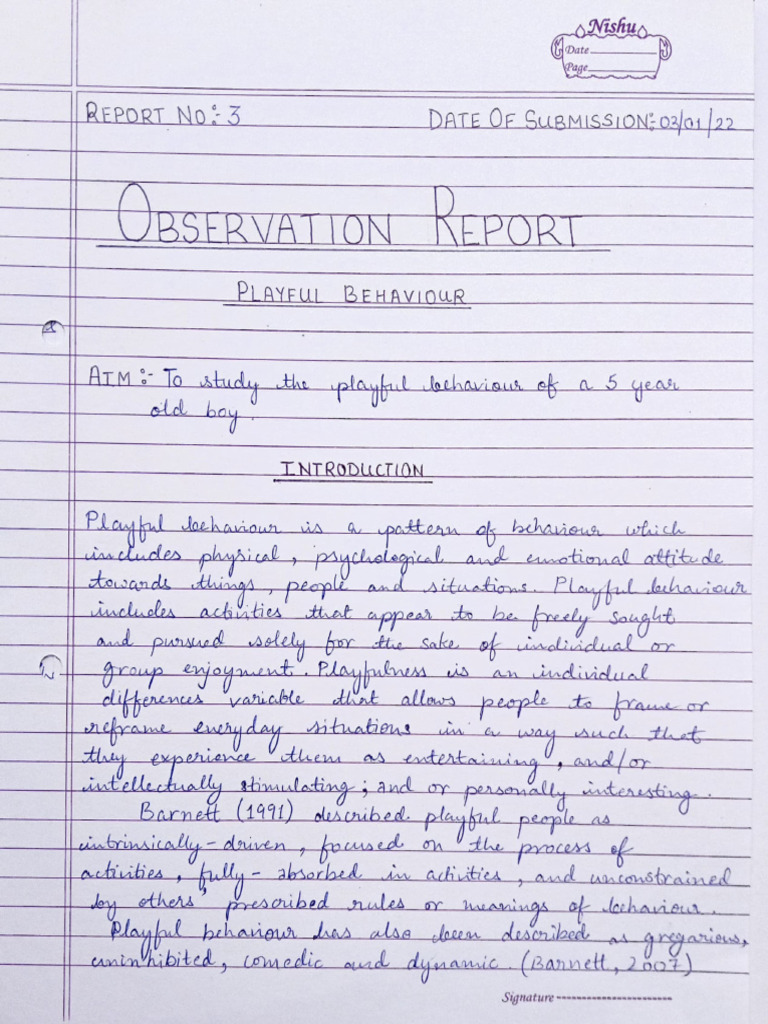 Nishu
Date
Page
REPORT NO:- 3 DATE OF SUBMISSION:- 03/01/22
OBSERVATION REPORT
PLAYFUL BEHAVIOUR
AIM :- To study the playful behaviour of a 5 year
old boy.
INTRODUCTION
Playful behaviour is a pattern of behaviour which
includes physical, psychological and emotional attitude
towards things, people and situations. Playful behaviour
includes activities that appear to be freely sought
and pursued solely for the sake of individual or
group enjoyment. Playfulness is an individual
differences variable that allows people to frame or
reframe everyday situations in a way such that
they experience them as entertaining, and/or
intellectually stimulating; and or personally interesting.
Barnett (1991) described playful people as
intrinsically-driven, focused on the process of
activities, fully-absorbed in activities, and unconstrained
by others' prescribed rules or meanings of behaviour.
Playful behaviour has also been described as gregarious,
uninhibited, comedic and dynamic. (Barnett, 2007)
Signature